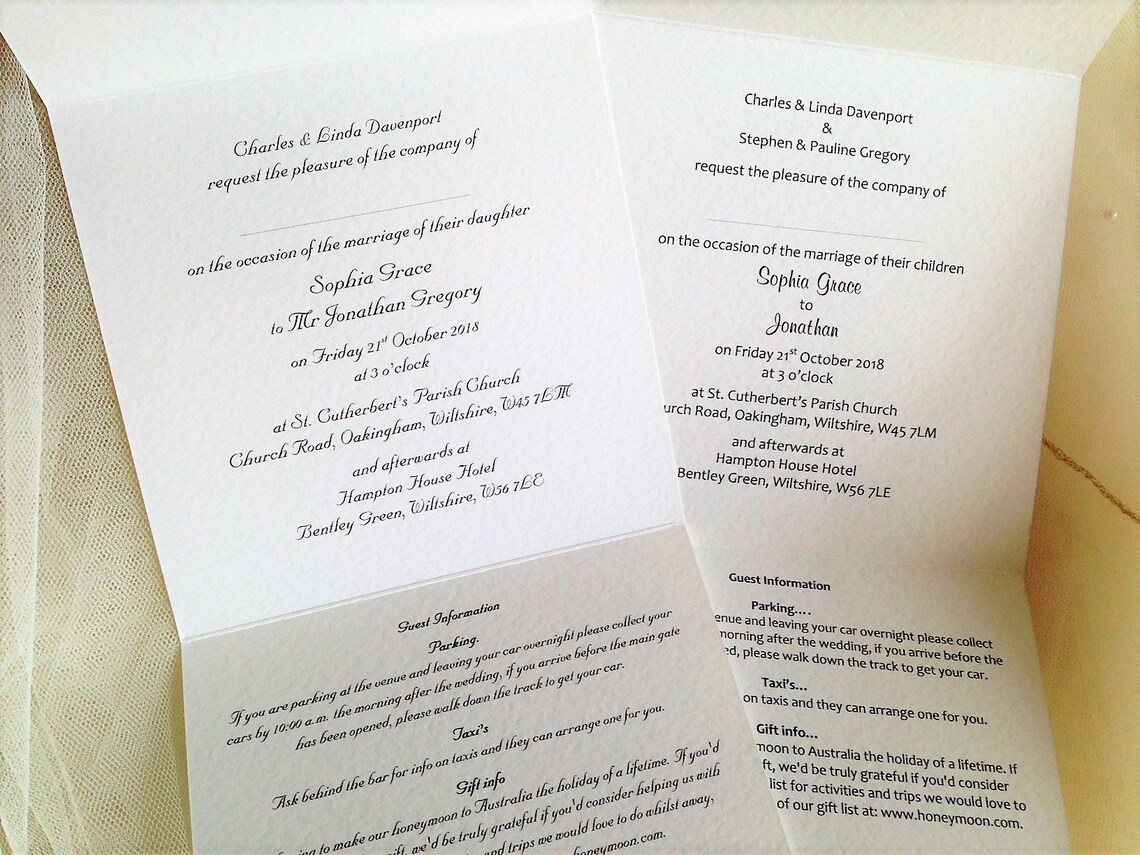 Charles & Linda Davenport
request the pleasure of the company of
on the occasion of the marriage of their daughter
Sophia Grace
to Mr Jonathan Gregory
on Friday 21st October 2018
at 3 o'clock
at St. Cutherbert's Parish Church
Church Road, Oakingham, Wiltshire, W45 7LM
and afterwards at
Hampton House Hotel
Bentley Green, Wiltshire, W56 7LE
Guest Information
Parking.
If you are parking at the venue and leaving your car overnight please collect your
cars by 10:00 a.m. the morning after the wedding, if you arrive before the main gate
has been opened, please walk down the track to get your car.
Taxi's
Ask behind the bar for info on taxis and they can arrange one for you.
Gift info
to make our honeymoon to Australia the holiday of a lifetime. If you'd
gift, we'd be truly grateful if you'd consider helping us with
and trips we would love to do whilst away,
honeymoon.com.
Charles & Linda Davenport
&
Stephen & Pauline Gregory
request the pleasure of the company of
on the occasion of the marriage of their children
Sophia Grace
to
Jonathan
on Friday 21st October 2018
at 3 o'clock
at St. Cutherbert's Parish Church
urch Road, Oakingham, Wiltshire, W45 7LM
and afterwards at
Hampton House Hotel
Bentley Green, Wiltshire, W56 7LE
Guest Information
Parking....
enue and leaving your car overnight please collect
morning after the wedding, if you arrive before the
ed, please walk down the track to get your car.
Taxi's...
on taxis and they can arrange one for you.
Gift info...
moon to Australia the holiday of a lifetime. If
ft, we'd be truly grateful if you'd consider
list for activities and trips we would love to
of our gift list at: www.honeymoon.com.